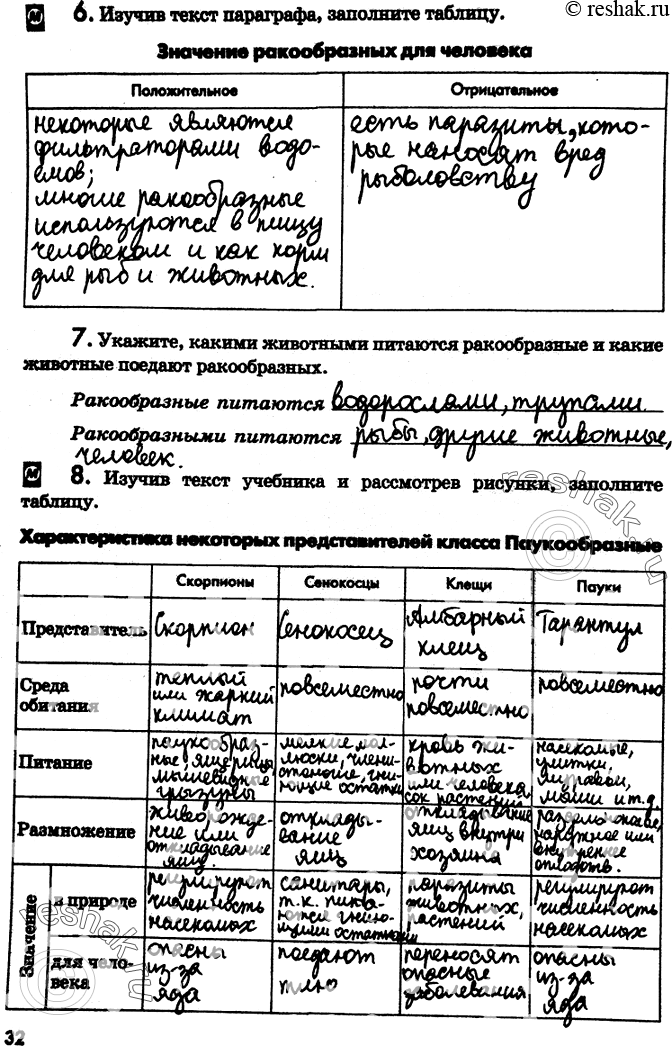 © reshak.ru
М 6. Изучив текст параграфа, заполните таблицу.
Значение ракообразных для человека
Положительное
Отрицательное
некоторые являются
фильтраторами водо-
емов;
многие ракообразные
используются в пищу
человеком и как корм
для рыб и животных.
есть паразиты, кото-
рые наносят вред
рыболовству
7. Укажите, какими животными питаются ракообразные и какие
животные поедают ракообразных.
Ракообразные питаются водорослями, трупами.
Ракообразными питаются рыбы, другие животные,
человек.
М 8. Изучив текст учебника и рассмотрев рисунки, заполните
таблицу.
Характеристика некоторых представителей класса Паукообразные
Скорпионы
Сенокосцы
Клещи
Пауки
Представитель
Скорпион
Сенокосец
Амбарный
клещ
Тарантул
Среда
обитания
теплый
или жаркий
климат
повсеместно
почти
повсеместно
повсеместно
Питание
паукообраз-
ные ящерицы
мышевидные
грызуны
мелкие мол-
люски, члени-
стоногие, гни-
ющие остатки
кровь жи-
вотных
или человека,
сок растений
насекомые,
улитки,
муравьи,
мыши и т.д.
Размножение
живорожде-
ние или
откладывание
яиц.
отклады-
вание
яиц
откладывание
яиц внутри
хозяина
раздельнополые,
наружное или
внутреннее
оплодотв.
Значение
в природе
регулируют
численность
насекомых
санитары,
т.к. пита-
ются гнию-
щими остатками
паразиты
животных,
растений
регулируют
численность
насекомых
для чело-
века
опасны
из-за
яда
поедают
тлю
переносят
опасные
заболевания
опасны
из-за
яда
reshak.ru
reshak.ru
32